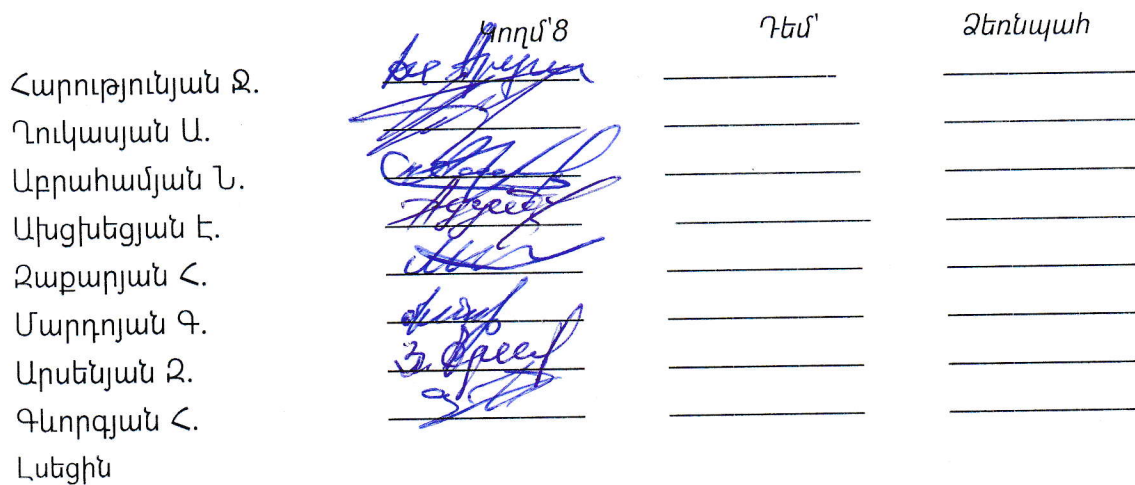 Կողմ՝8 Դեմ՝ Ձեռնպահ
Հարությունյան Ջ.
Ղուկասյան Ա.
Աբրահամյան Ն.
Ախցխեցյան Է.
Զաքարյան Հ.
Մարդոյան Գ.
Արսենյան Զ.
Գևորգյան Հ.
Լսեցին